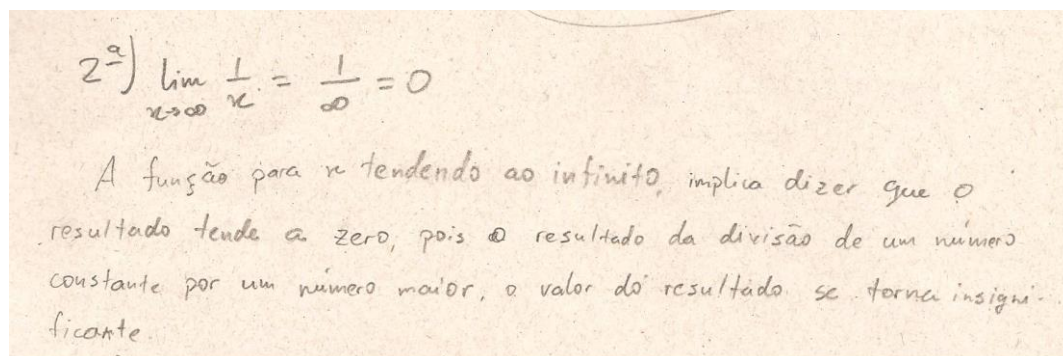 2ª) lim x→∞ 1/x = 1/∞ = 0
A função para x tendendo ao infinito, implica dizer que o
resultado tende a zero, pois o resultado da divisão de um número
constante por um número maior, o valor do resultado se torna insigni-
ficante.